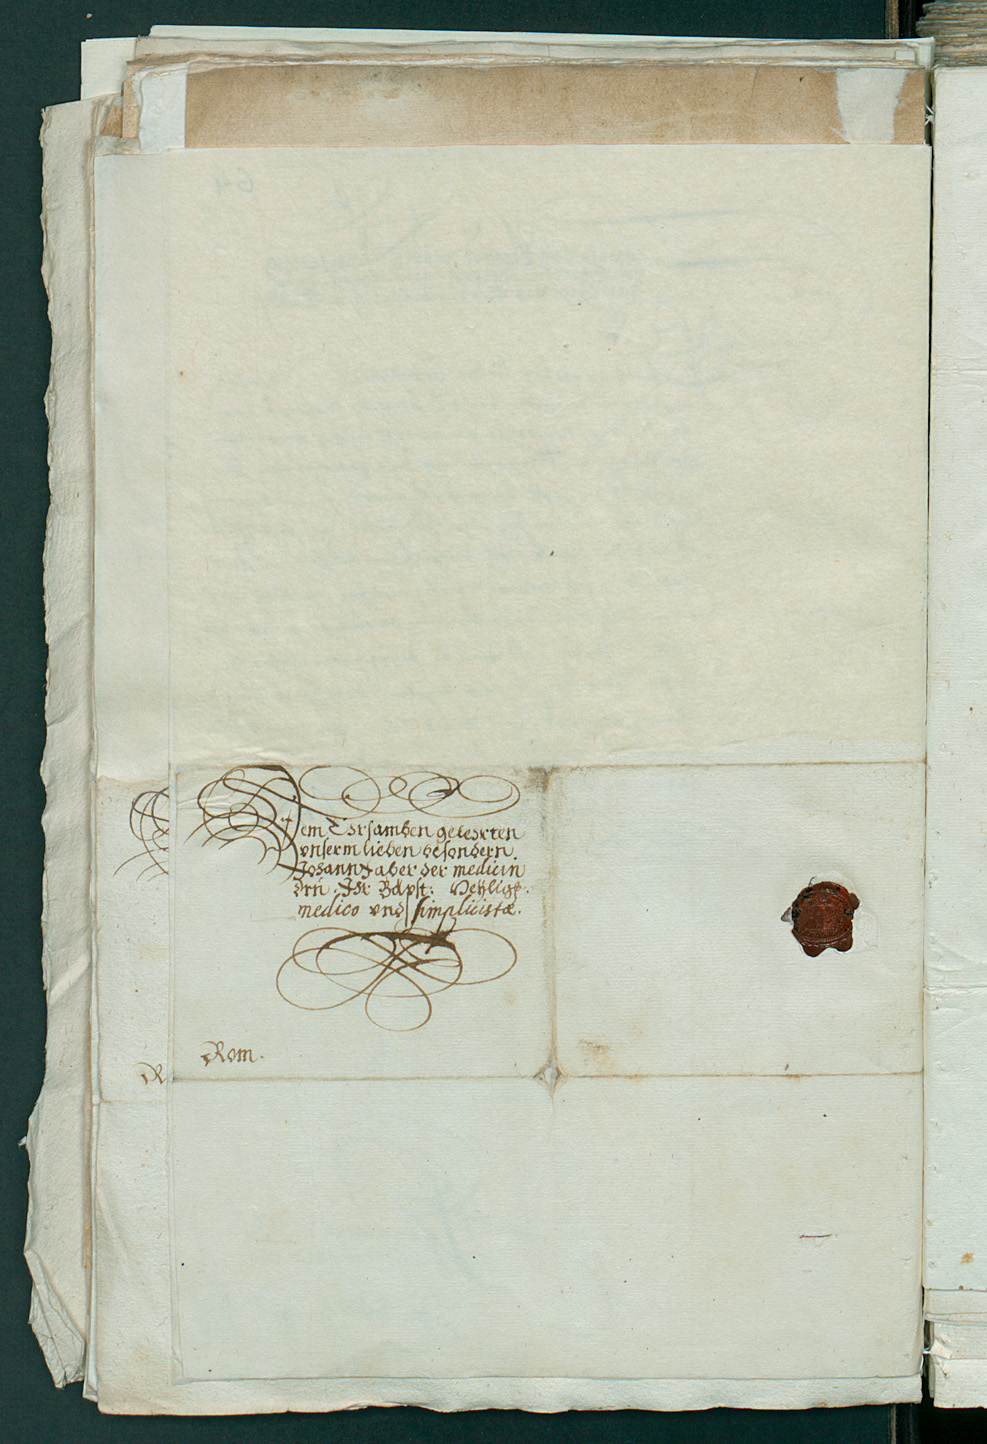 Dem Ehrsamben gelehrten
vnserm lieben besondern.
Johann Faber der medicin
drn. Ihr Bäpst: Heÿligk.
medico vnd simplicistæ.
Rom.
R